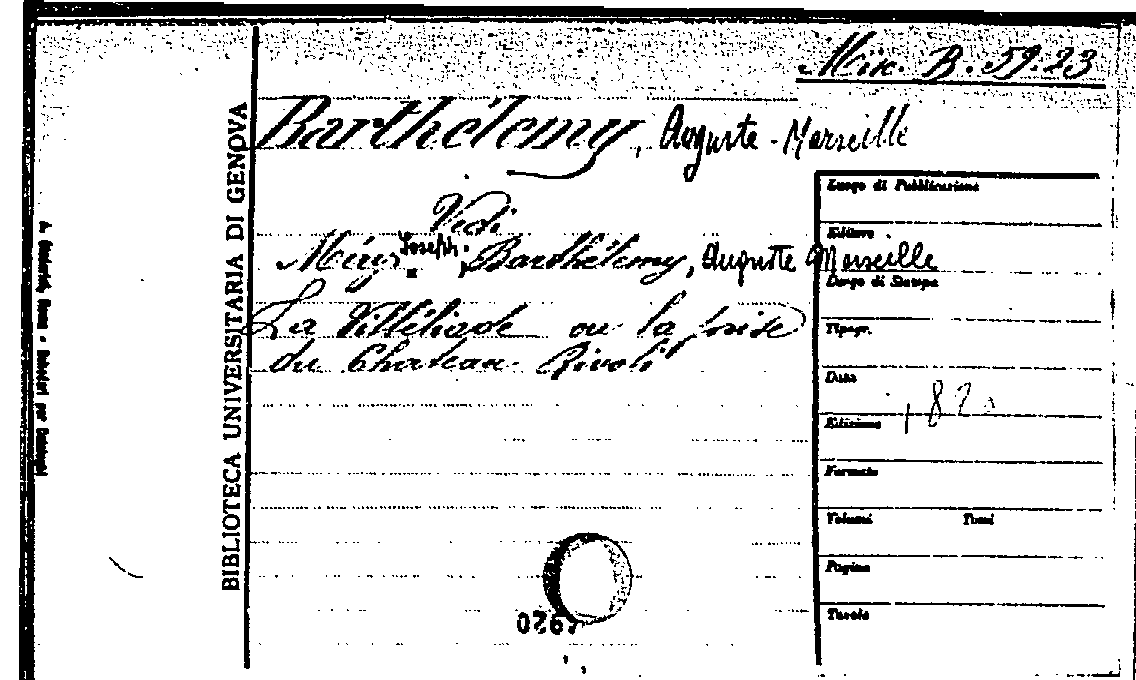 Misc. B. 59.23
Barthélemy, Auguste-Marseille
Vedi
Méry Joseph; Barthélemy, Auguste Marseille
La Villéliade ou la prise
du Chateau Rivoli
BIBLIOTECA UNIVERSITARIA DI GENOVA
Luogo di Pubblicazione
Editore
Luogo di Stampa
Tipogr.
Data
182
Edizione
Formato
Volumi Tomi
Pagine
Tavole